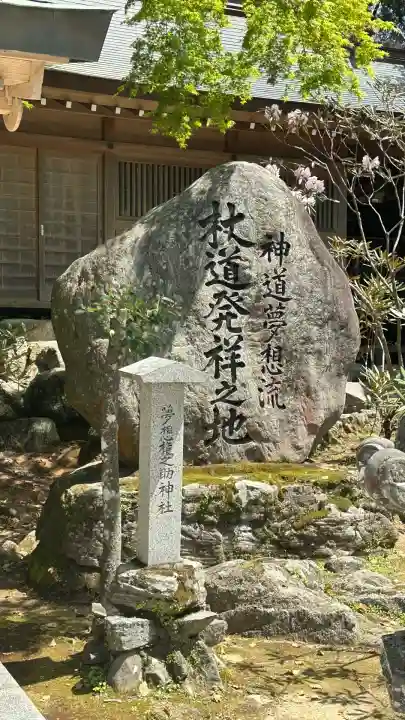 神道夢想流
杖道発祥之地
夢想権之助神社